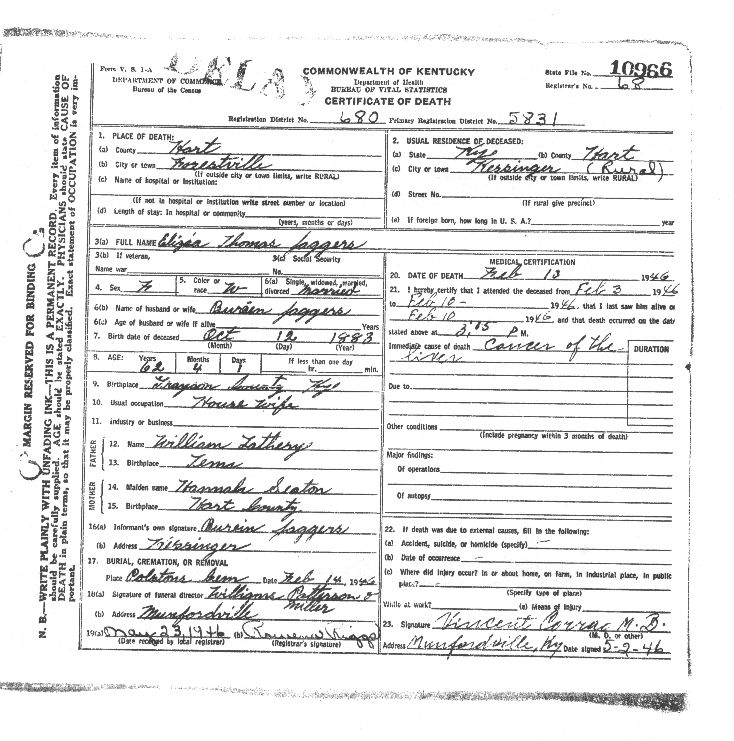 Form V. S. 1-A
DEPARTMENT OF COMMERCE
Bureau of the Census
DELA
COMMONWEALTH OF KENTUCKY
Department of Health
BUREAU OF VITAL STATISTICS
CERTIFICATE OF DEATH
State File No. 10966
Registrar's No. 68
Registration District No. 680 Primary Registration District No. 5831
MARGIN RESERVED FOR BINDING
N. B.—WRITE PLAINLY WITH UNFADING INK—THIS IS A PERMANENT RECORD. Every item of information
should be carefully supplied. AGE should be stated EXACTLY. PHYSICIANS should state CAUSE OF
DEATH in plain terms, so that it may be properly classified. Exact statement of OCCUPATION is very im-
portant.
1. PLACE OF DEATH:
(a) County Hart
(b) City or town Forestville
(If outside city or town limits, write RURAL)
(c) Name of hospital or institution:
(If not in hospital or institution write street number or location)
(d) Length of stay: In hospital or community
(years, months or days)
2. USUAL RESIDENCE OF DECEASED:
(a) State Ky (b) County Hart
(c) City or town Kessinger (Rural)
(If outside city or town limits, write RURAL)
(d) Street No.
(If rural give precinct)
(e) If foreign born, how long in U. S. A.? year
3(a) FULL NAME Thomas Jaggers
3(b) If veteran, 3(c) Social Security
Name war No.
4. Sex F 5. Color or race W 6(a) Single, widowed, married, divorced Married
6(b) Name of husband or wife Burein Jaggers
6(c) Age of husband or wife if alive Years
7. Birth date of deceased Oct 12 1883
(Month) (Day) (Year)
8. AGE: Years Months Days If less than one day
62 4 1 hr. min.
9. Birthplace Grayson County Ky
10. Usual occupation House wife
11. Industry or business
FATHER
12. Name William
13. Birthplace Tenn
MOTHER
14. Maiden name Hannah Seaton
15. Birthplace Hart County
16(a) Informant's own signature Burein Jaggers
(b) Address Kessinger
17. BURIAL, CREMATION, OR REMOVAL
Place Colstons Cem Date Feb 14, 1946
18(a) Signature of funeral director Williams Patterson & Miller
(b) Address Munfordville
19(a) May 23, 1946 (b)
(Date received by local registrar) (Registrar's signature)
MEDICAL CERTIFICATION
20. DATE OF DEATH Feb 13 1946
21. I hereby certify that I attended the deceased from Feb 3 1946
to Feb 10 1946, that I last saw him alive o
Feb 10 1946 and that death occurred on the date
stated above at 2:05 P M.
Immediate cause of death Cancer of the DURATION
liver
Due to
Other conditions
(Include pregnancy within 3 months of death)
Major findings:
Of operations
Of autopsy
22. If death was due to external causes, fill in the following:
(a) Accident, suicide, or homicide (specify) -
(b) Date of occurrence -
(c) Where did injury occur? In or about home, on farm, in industrial place, in public
place? -
(Specify type of place)
While at work? (e) Means of injury
23. Signature Vincent M. D.
(M. D. or other)
Address Munfordville, Ky Date signed 5-2-46